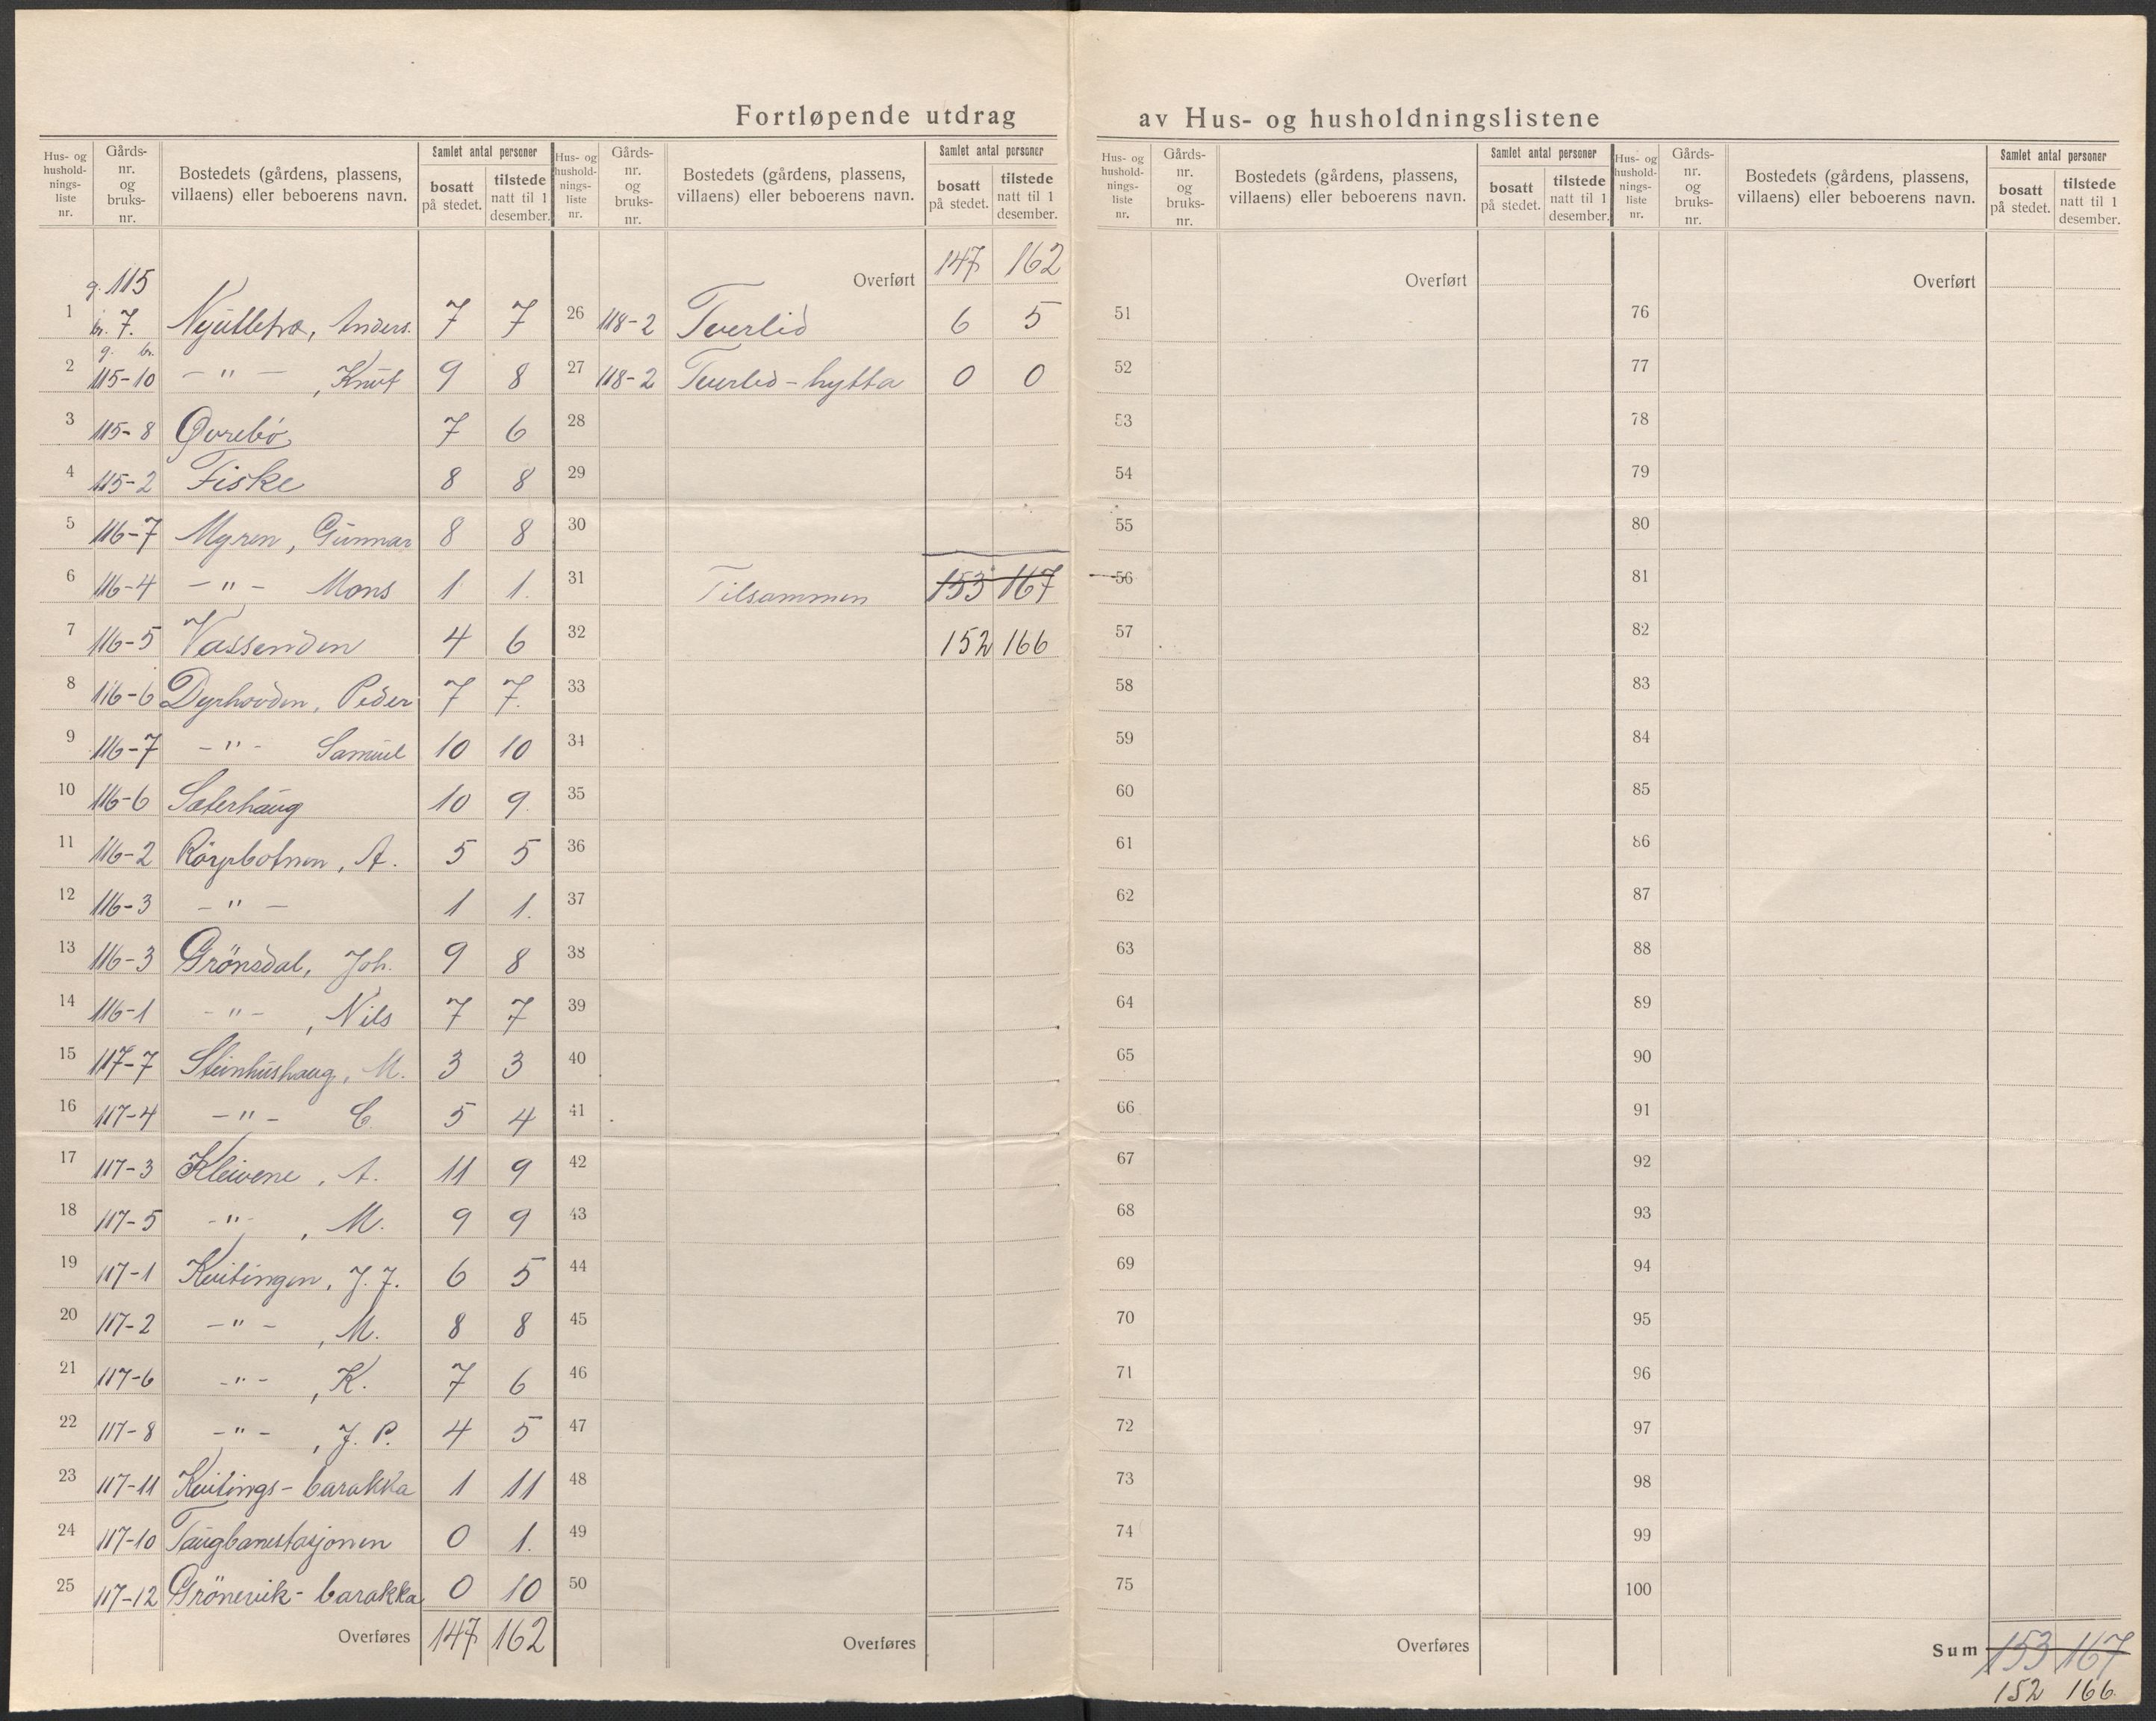 Fortløpende utdrag av Hus- og husholdningslistene
Hus- og husholdnings-liste nr. | Gårds-nr. og bruks-nr. | Bostedets (gårdens, plassens, villaens) eller beboerens navn. | Samlet antal personer | bosatt på stedet. | tilstede natt til 1 desember.
Hus- og husholdnings-liste nr. | Gårds-nr. og bruks-nr. | Bostedets (gårdens, plassens, villaens) eller beboerens navn. | Samlet antal personer | bosatt på stedet. | tilstede natt til 1 desember.
Hus- og husholdnings-liste nr. | Gårds-nr. og bruks-nr. | Bostedets (gårdens, plassens, villaens) eller beboerens navn. | Samlet antal personer | bosatt på stedet. | tilstede natt til 1 desember.
Hus- og husholdnings-liste nr. | Gårds-nr. og bruks-nr. | Bostedets (gårdens, plassens, villaens) eller beboerens navn. | Samlet antal personer | bosatt på stedet. | tilstede natt til 1 desember.
1 g. 115 br. 7. Anders. 7 7
2 g. br. 115-10 -"- , Knut 9 8
3 115-8 Øvrebø 7 6
4 115-2 Fiske 8 8
5 116-7 Myren, Gunnar 8 8
6 116-4 -"- Mons 1 1.
7 116-5 Vassenden 4 6
8 116-6 Dyrhovden, Peder 7 7.
9 116-7 -"- Samuel 10 10
10 116-6 Sæterhaug 10 9.
11 116-2 A. 5 5
12 116-3 -"- 1 1.
13 116-3 Grönsdal, Joh. 9 8
14 116-1 -"- , Nils 7 7
15 117-7 Steinhushaug, M. 3 3
16 117-4 -"- C. 5 4
17 117-3 Kleivene, A. 11 9
18 117-5 -"- , M. 9 9
19 117-1 Kvitingen, J. J. 6 5
20 117-2 -"- , M. 8 8
21 117-6 -"- , K. 7 6
22 117-8 -"- , J. P. 4 5
23 117-11 Kvitings-barakka 1 11
24 117-10 Taugbanestasjonen 0 1.
25 117-12 Grönevik-barakka 0 10
Overføres 147 162
Overført 147 162
26 118-2 Tverlid 6 5
27 118-2 Tverlid-hytta 0 0
28
29
30
31 Tilsammen 153 167
32 152 166
33
34
35
36
37
38
39
40
41
42
43
44
45
46
47
48
49
50
Overføres
Overført
51
52
53
54
55
56
57
58
59
60
61
62
63
64
65
66
67
68
69
70
71
72
73
74
75
Overføres
Overført
76
77
78
79
80
81
82
83
84
85
86
87
88
89
90
91
92
93
94
95
96
97
98
99
100
Sum 153 167
152 166